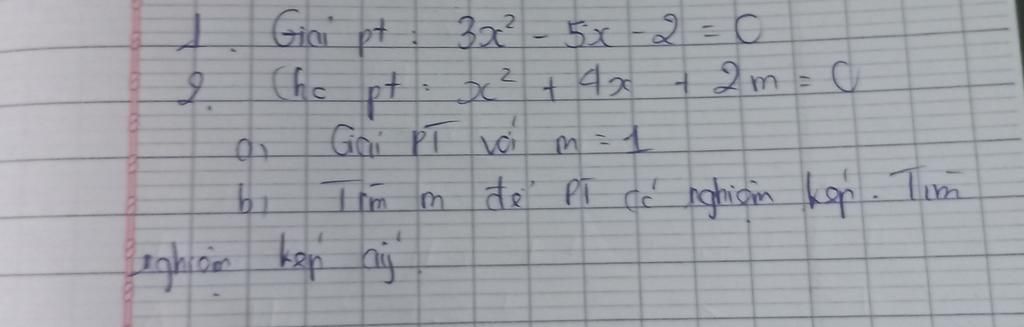 1. Giải pt: 3x² - 5x - 2 = 0
2. Cho pt: x² + 4x + 2m = 0
a, Giải PT với m = 1
b, Tìm m để PT có nghiệm kép. Tìm
nghiệm kép ấy